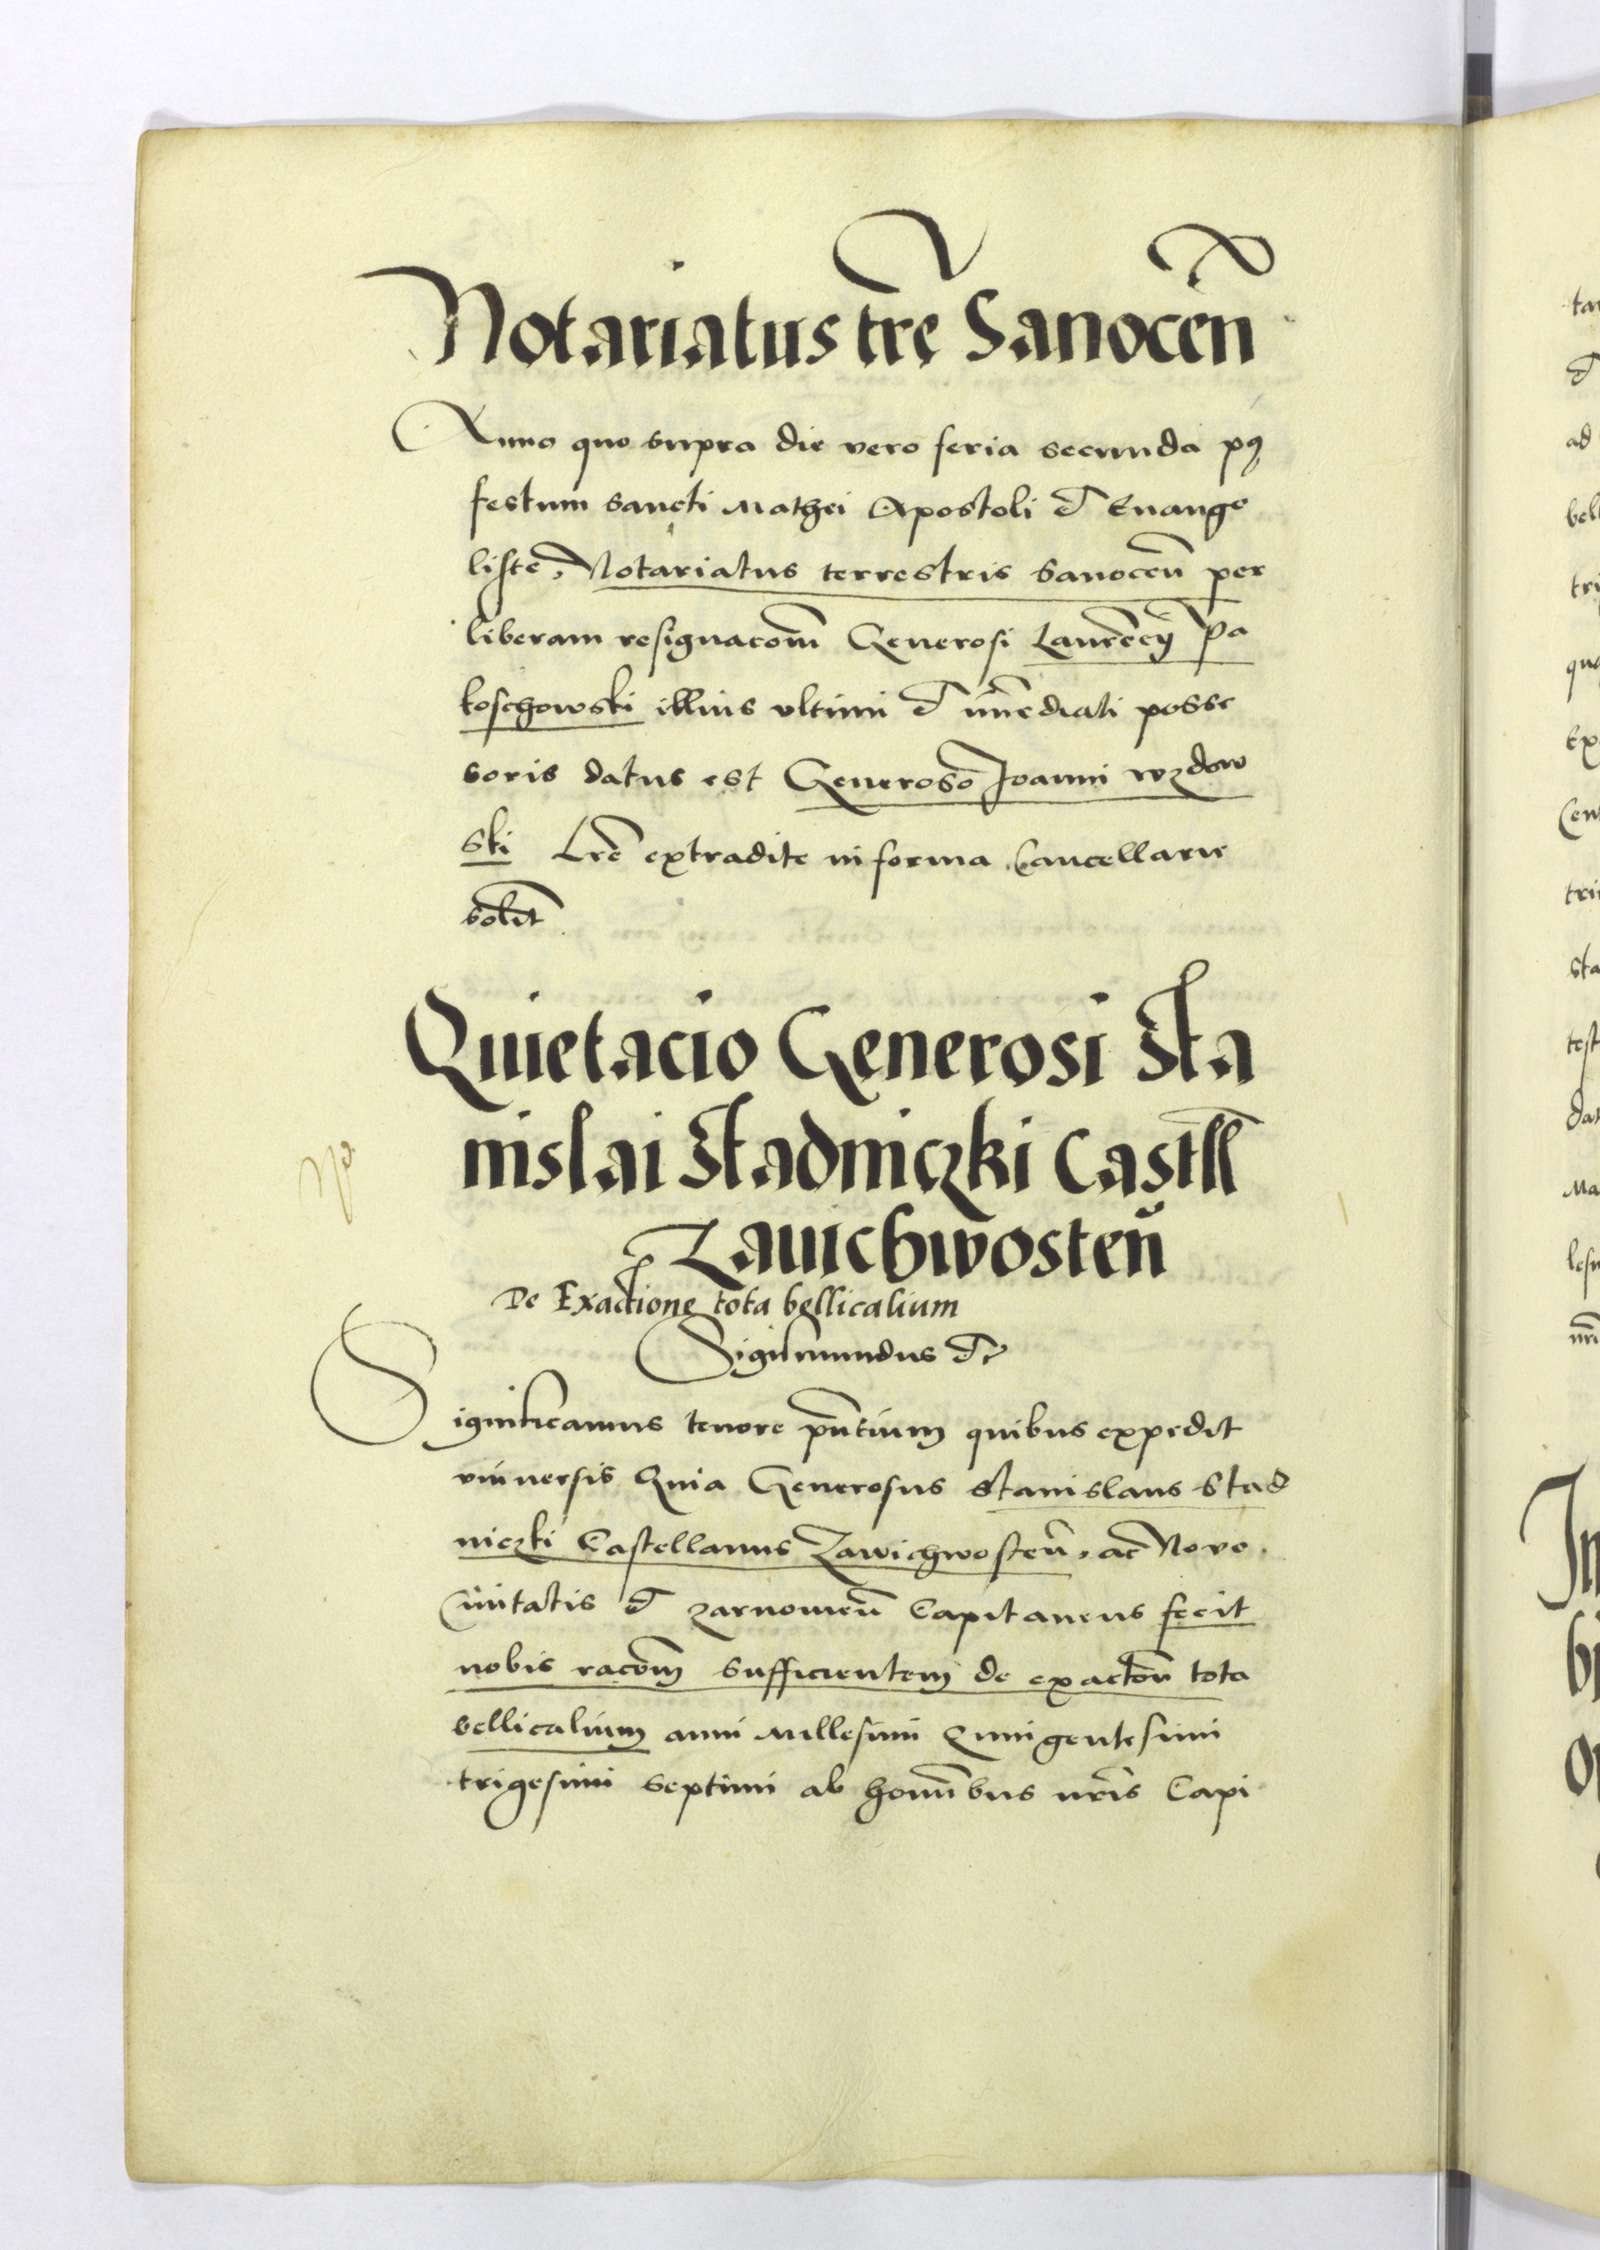 Notariatus tre Sanocen
Anno quo supra die vero feria secunda pꝰ
festum sancti Mathei Apostoli et Euange
liste, Notariatus terrestris Sanocen per
liberam resignacom Generosi Laurecij Pa
koschowski illius vltimi et imediati posse
soris datus est Generoso Joanni wzdow
ski Lre extradite in forma Cancellarie
solit
Quietacio Generosi Sta
nislai Stadniczki Castll
Zauichwosten
De Exactione tota bellicalium
Sigismundus etc
Significamus tenore pntium quibus expedit
vniuersis Quia Generosus Stanislaus Stad
niczki Castellanus Zawichwosten, ac Nove
Ciuitatis et zarnouien Capitaneus fecit
nobis racom sufficientem de exacton tota
bellicalium anni Millesimi Quingentesimi
trigesimi septimi ab hominibus nris Capi